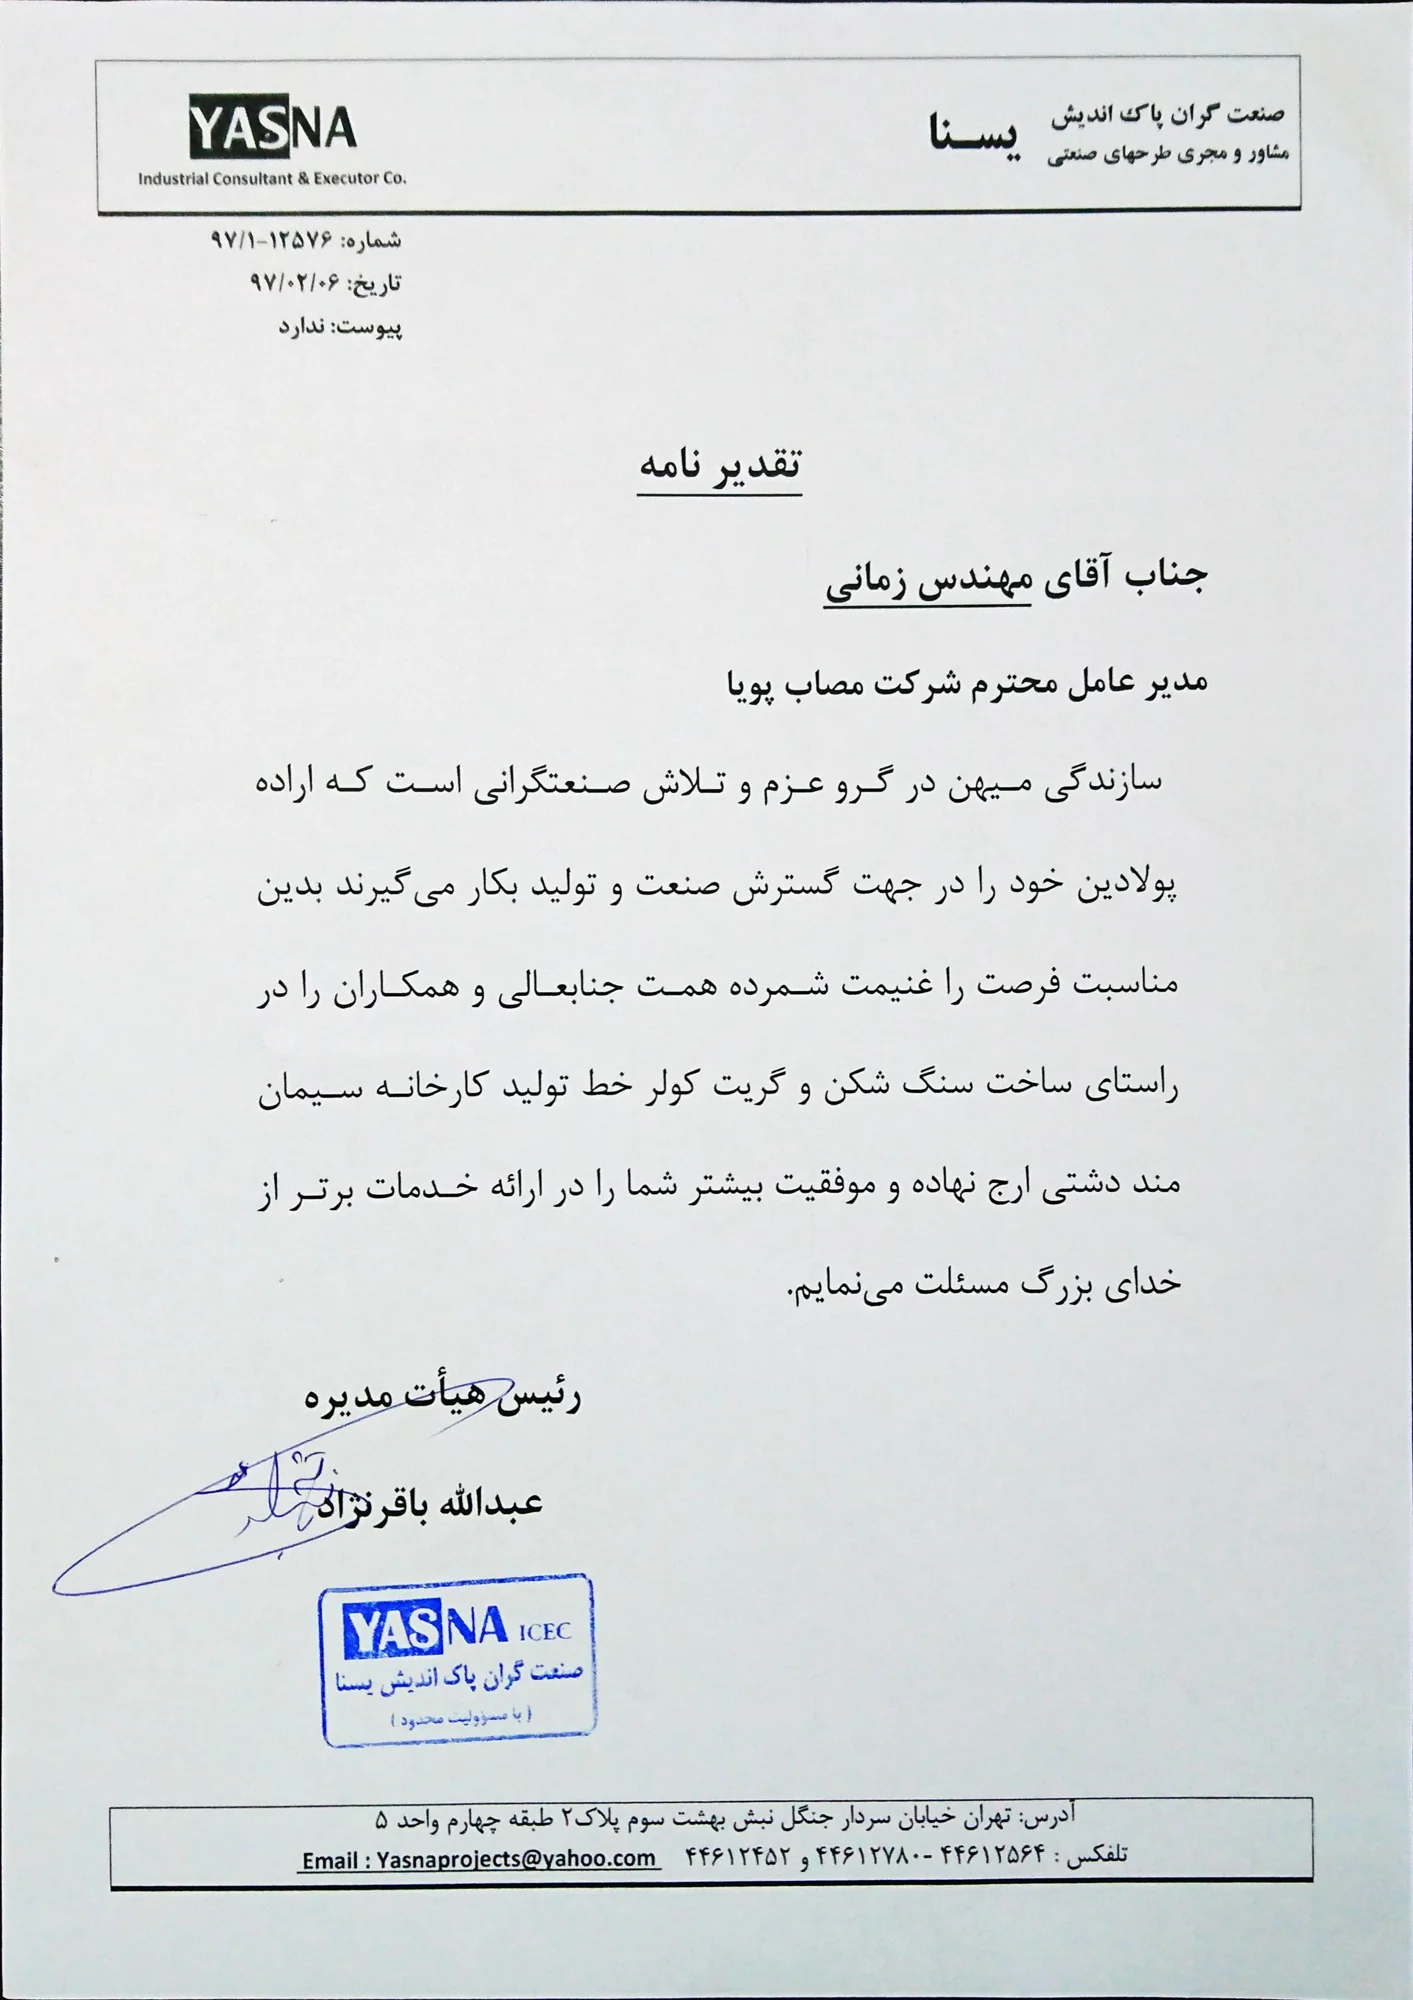 صنعت گران پاک اندیش
مشاور و مجری طرحهای صنعتی
یسنا
YASNA
Industrial Consultant & Executor Co.
شماره: ۱۲۵۷۶-۹۷/۱
تاریخ: ۹۷/۰۲/۰۶
پیوست: ندارد
تقدیر نامه
جناب آقای مهندس زمانی
مدیر عامل محترم شرکت مصاب پویا
سازندگی میهن در گرو عزم و تلاش صنعتگرانی است که اراده
پولادین خود را در جهت گسترش صنعت و تولید بکار می‌گیرند بدین
مناسبت فرصت را غنیمت شمرده همت جنابعالی و همکاران را در
راستای ساخت سنگ شکن و گریت کولر خط تولید کارخانه سیمان
مند دشتی ارج نهاده و موفقیت بیشتر شما را در ارائه خدمات برتر از
خدای بزرگ مسئلت می‌نمایم.
رئیس هیأت مدیره
عبدالله باقرنژاد
YASNA ICEC
صنعت گران پاک اندیش یسنا
( با مسؤولیت محدود )
آدرس: تهران خیابان سردار جنگل نبش بهشت سوم پلاک۲ طبقه چهارم واحد ۵
تلفکس : ۴۴۶۱۲۵۶۴ -۴۴۶۱۲۷۸۰ و ۴۴۶۱۲۴۵۲ Email : Yasnaprojects@yahoo.com